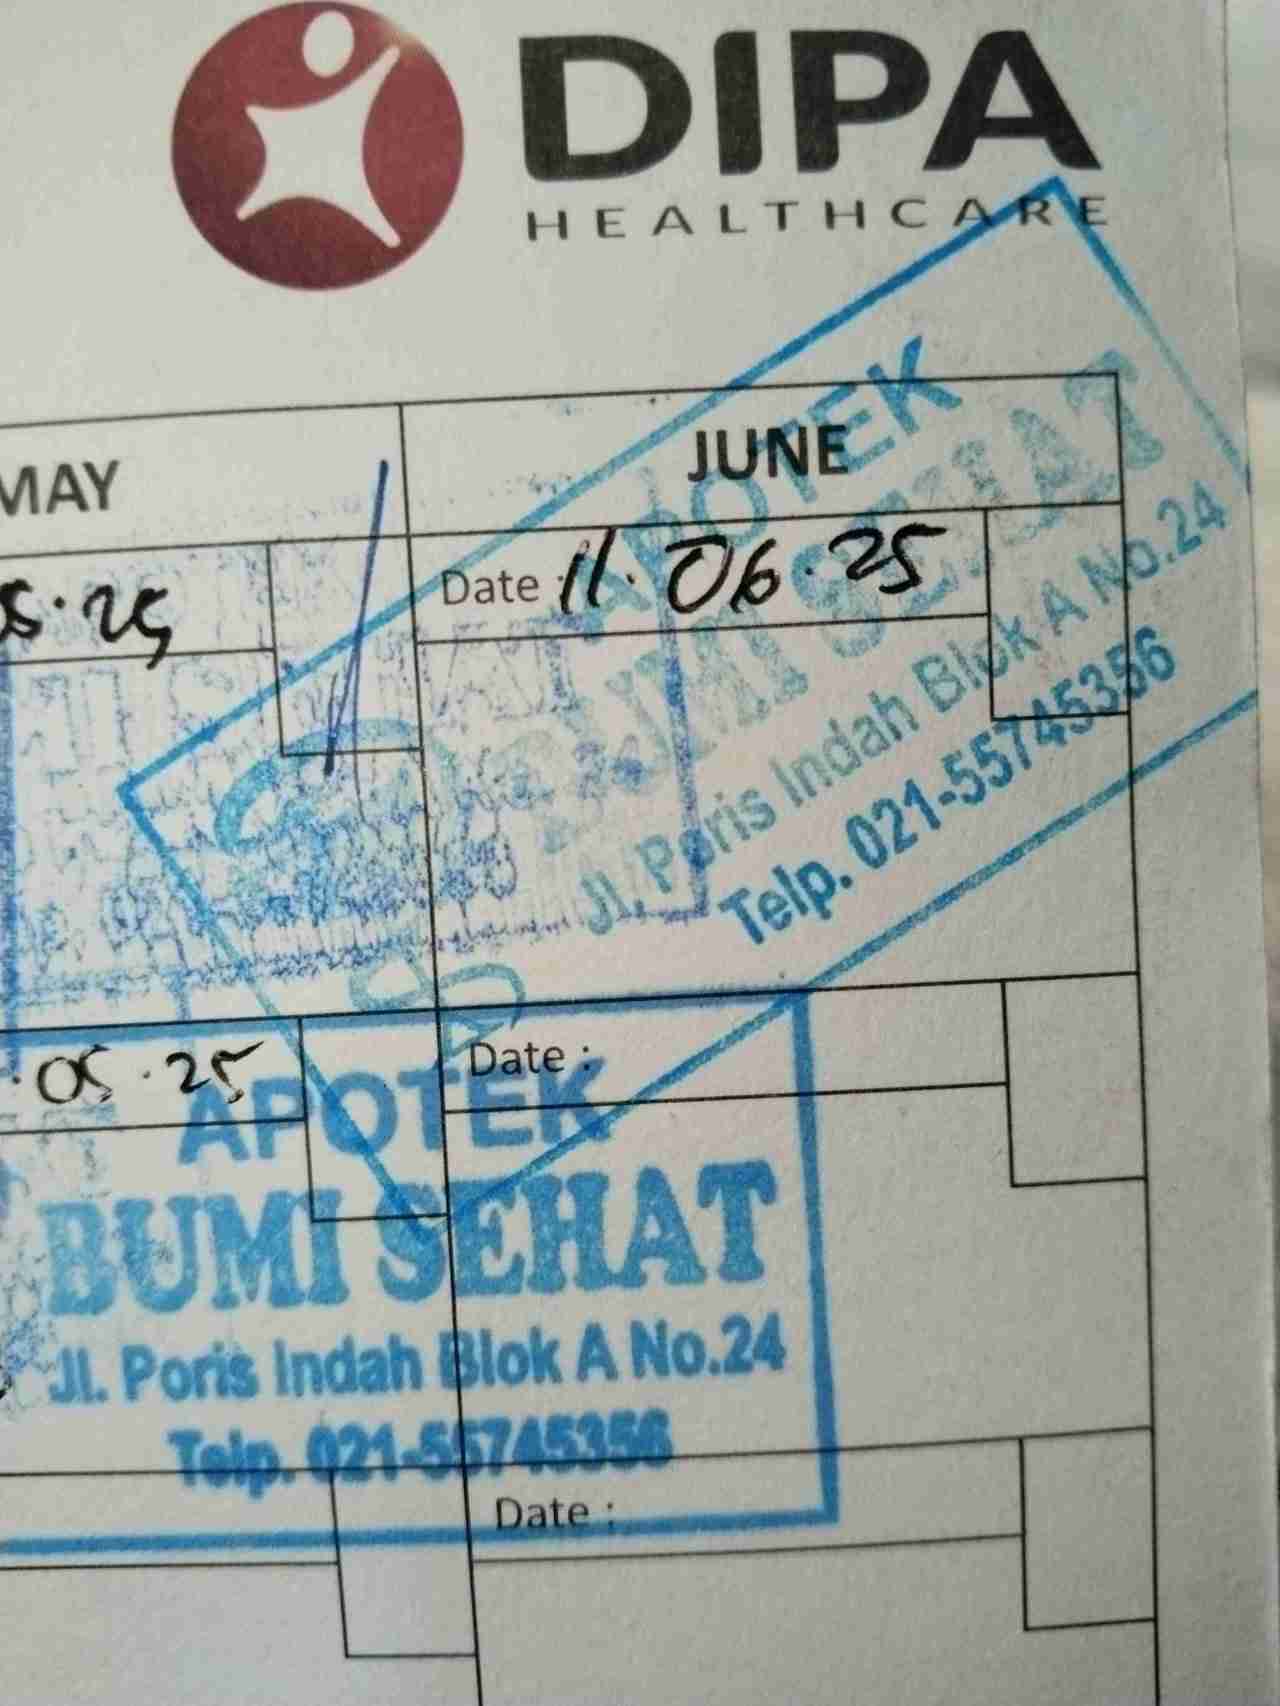 DIPA
HEALTHCARE
MAY
JUNE
Date : 11.06.25
APOTEK
BUMI SEHAT
Jl. Poris Indah Blok A No.24
Telp. 021-55745356
.05.25
Date :
APOTEK
BUMI SEHAT
Jl. Poris Indah Blok A No.24
Telp. 021-55745356
Date :